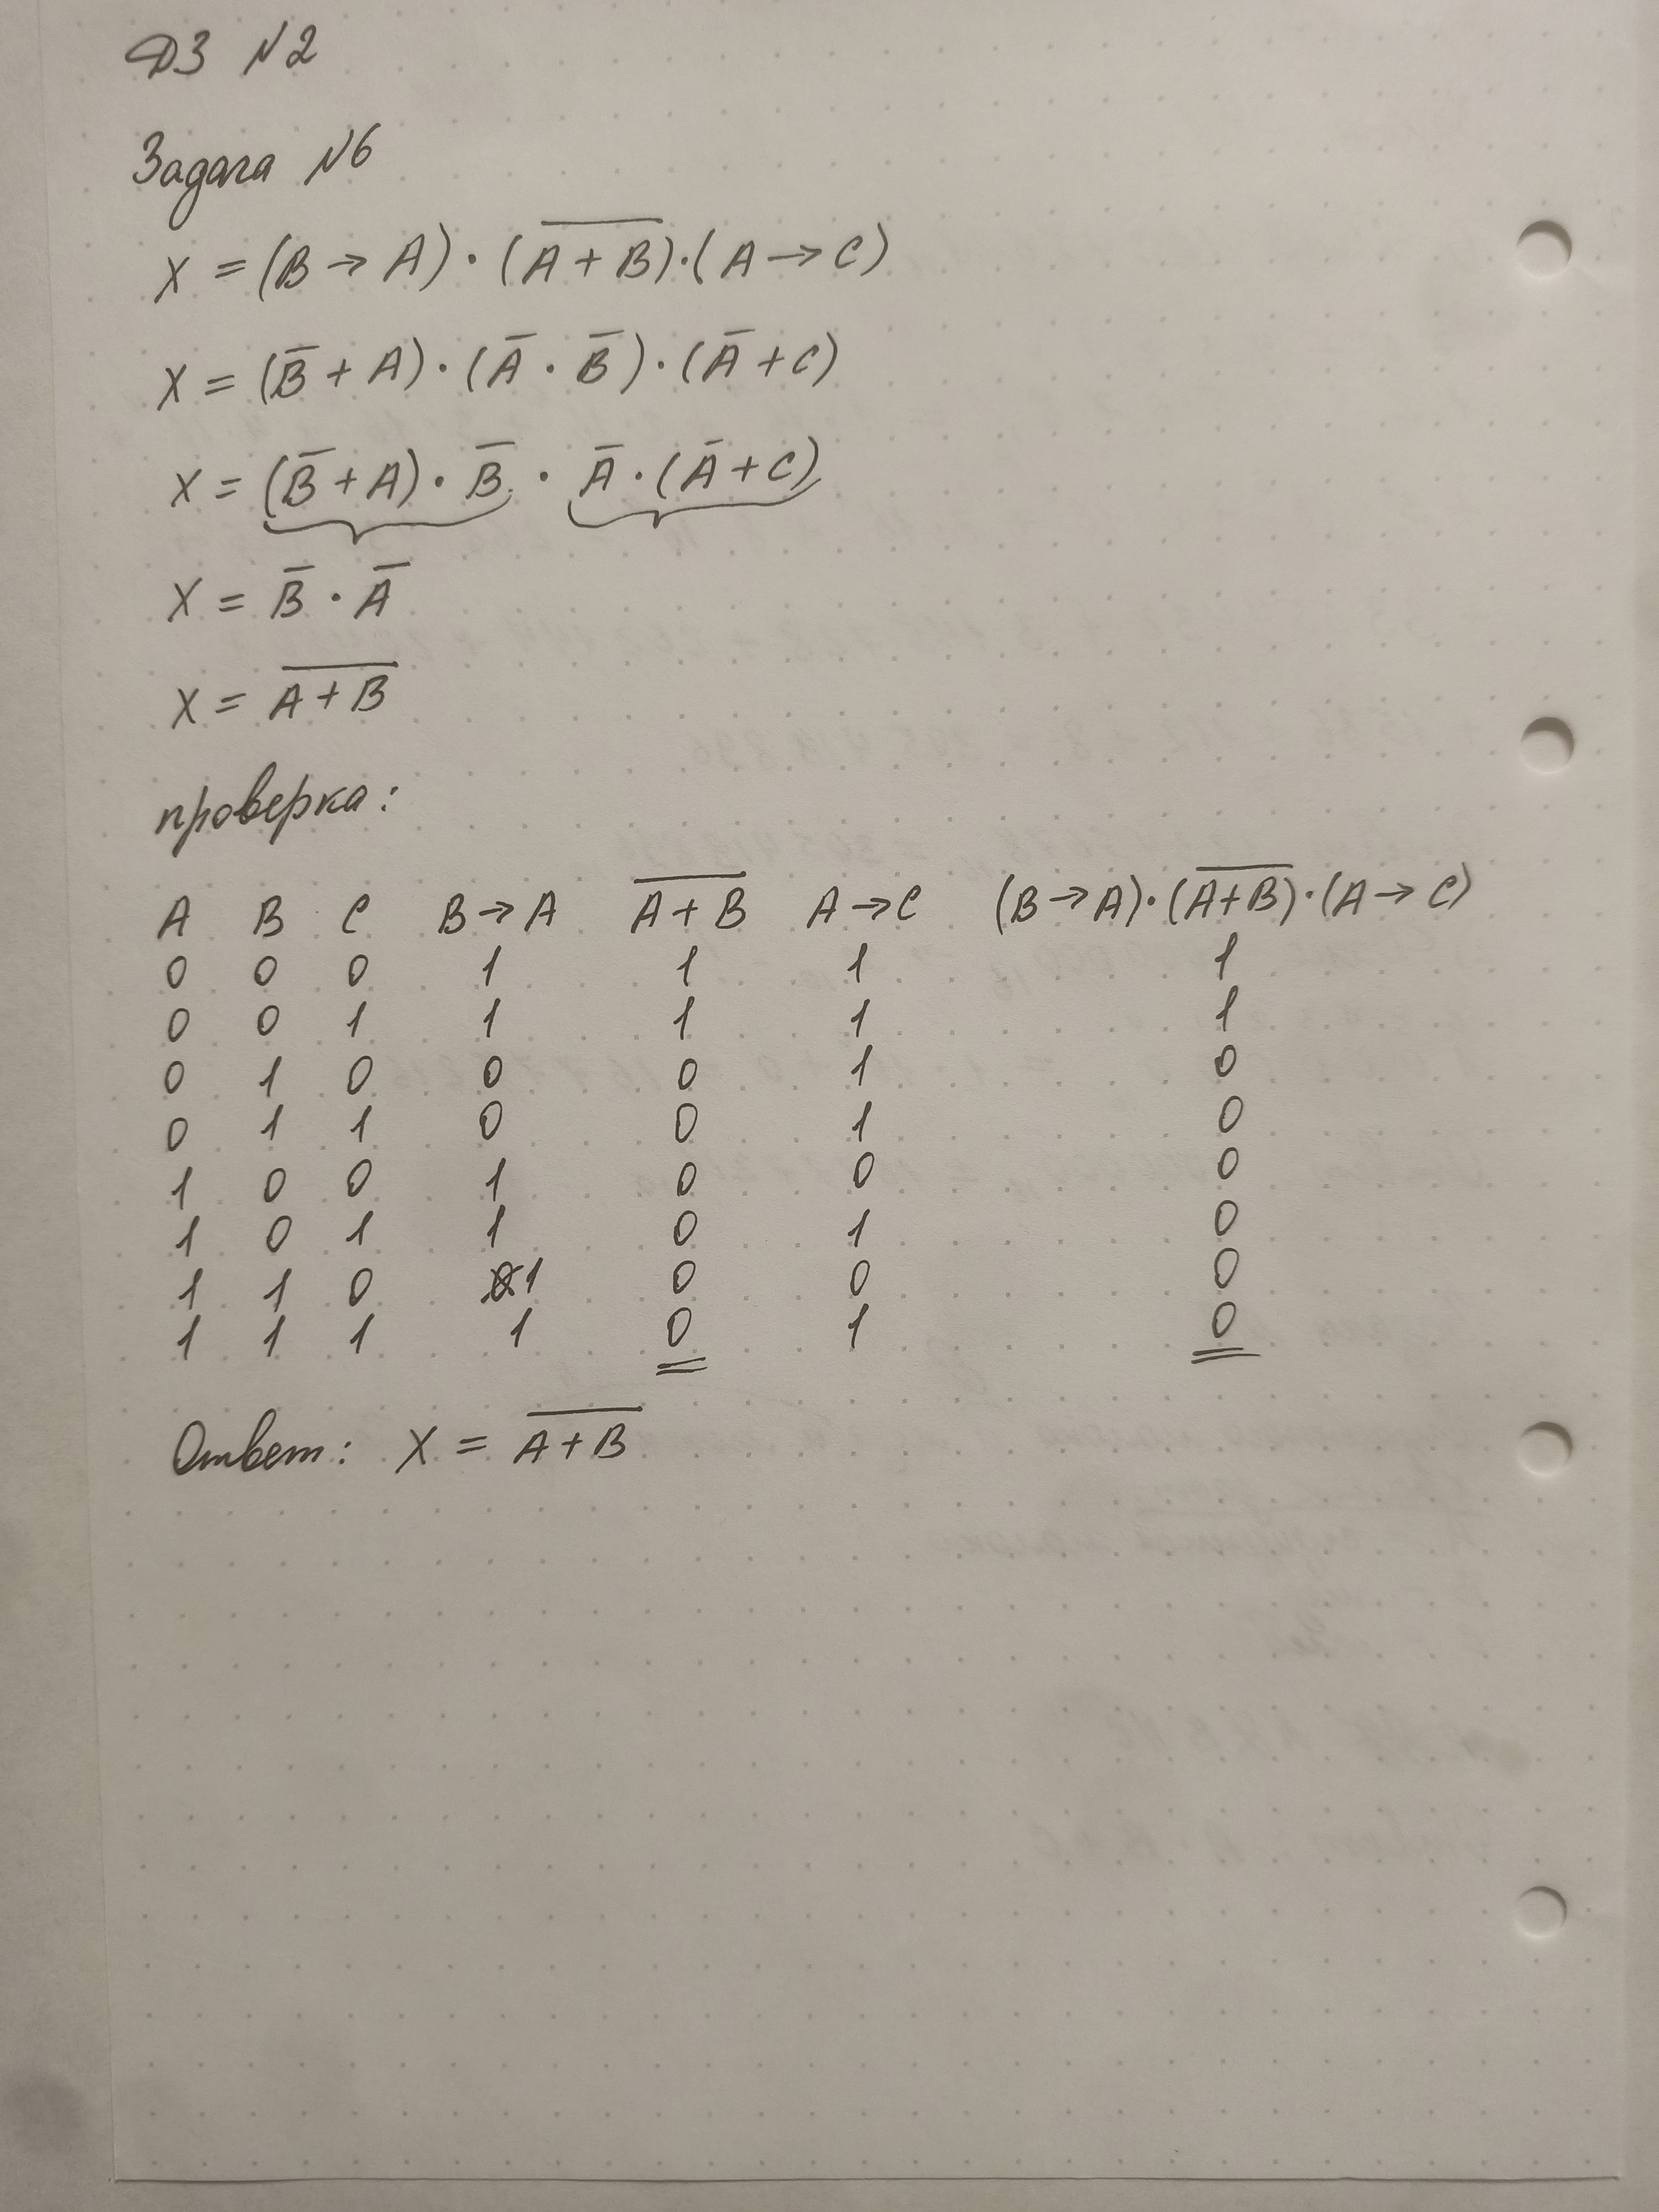 ДЗ №2
Задача №6
X = (B → A) · (A̅ ̅+̅ ̅B̅) · (A → C)
X = (B̅ + A) · (A̅ · B̅) · (A̅ + C)
X = (B̅ + A) · B̅ · A̅ · (A̅ + C)
X = B̅ · A̅
X = A̅ ̅+̅ ̅B̅
проверка:
A B C B → A A̅ ̅+̅ ̅B̅ A → C (B → A) · (A̅ ̅+̅ ̅B̅) · (A → C)
0 0 0 1 1 1 1
0 0 1 1 1 1 1
0 1 0 0 0 1 0
0 1 1 0 0 1 0
1 0 0 1 0 0 0
1 0 1 1 0 1 0
1 1 0 1 0 0 0
1 1 1 1 0 1 0
Ответ: X = A̅ ̅+̅ ̅B̅